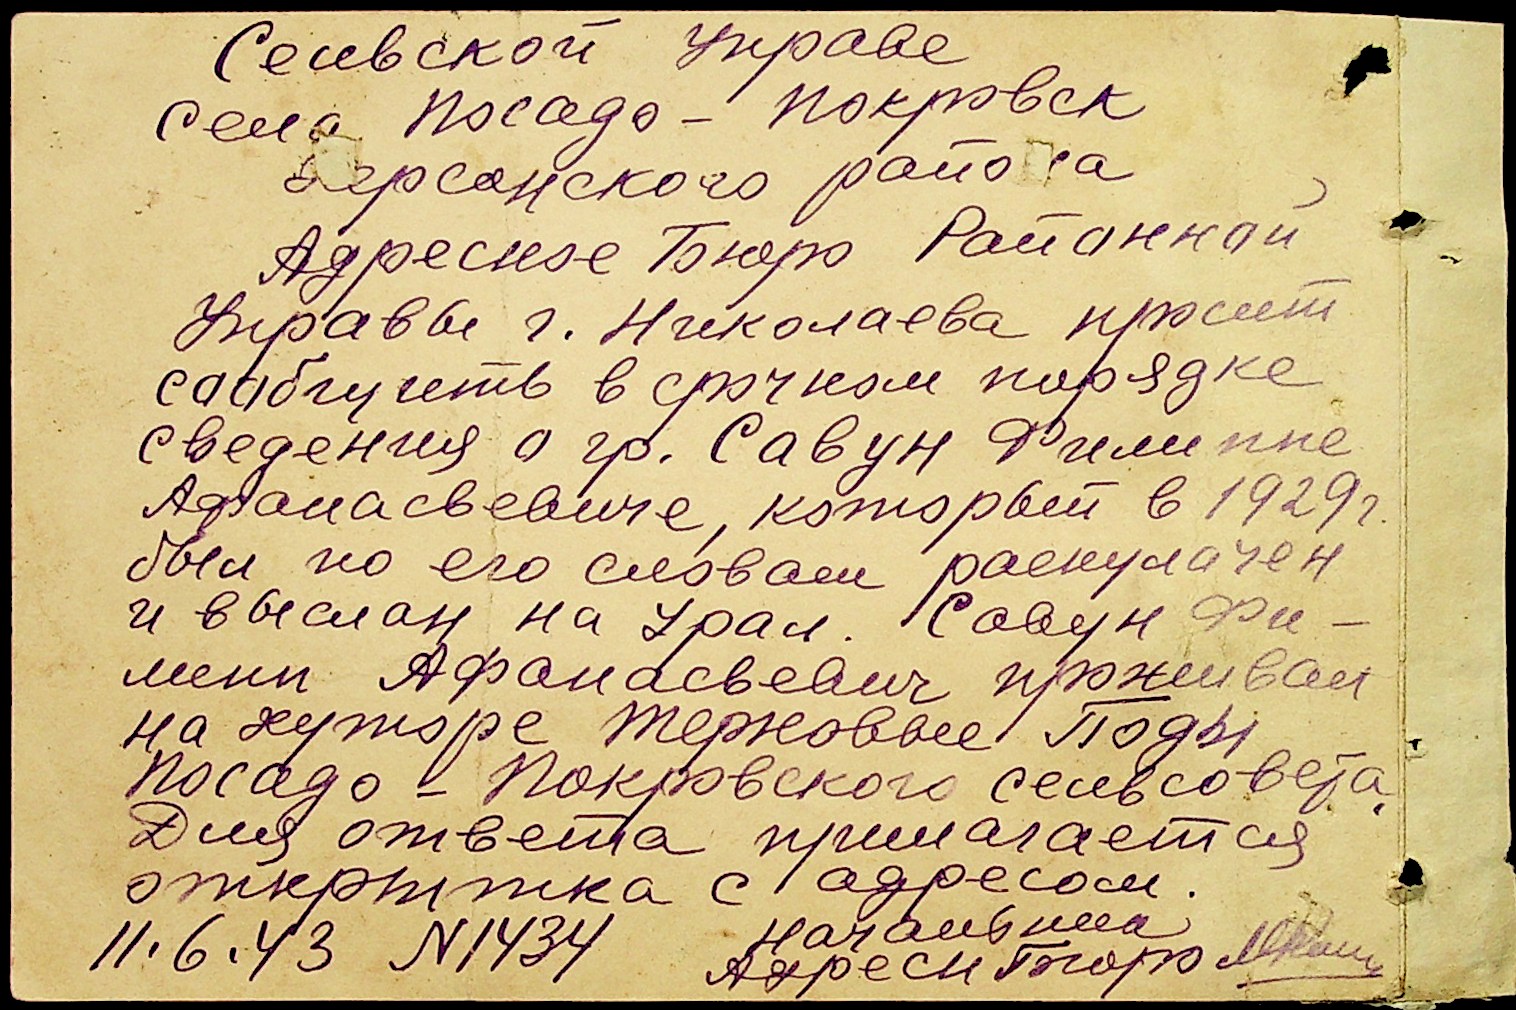 Сельской Управе
села Посадо - Покровск
Херсонского района
Адресное Бюро Районной
Управы г. Николаева просит
сообщить в срочном порядке
сведения о гр. Савун Филиппе
Афанасьевиче, который в 1929 г.
был по его словам раскулачен
и выслан на Урал. Савун Фи-
липп Афанасьевич проживал
на хуторе Терновые Поды
Посадо - Покровского сельсовета.
Для ответа прилагается
открытка с адресом.
11.6.43 N1434 Начальник
Адресн Бюро